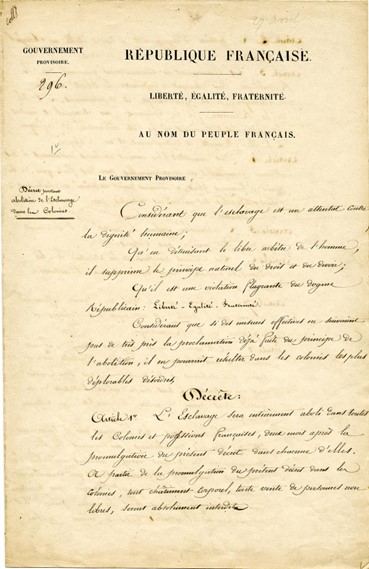 GOUVERNEMENT
PROVISOIRE.
296.
1er
RÉPUBLIQUE FRANÇAISE.
LIBERTÉ, ÉGALITÉ, FRATERNITÉ.
AU NOM DU PEUPLE FRANÇAIS.
LE GOUVERNEMENT PROVISOIRE,
Décret portant
abolition de l'Esclavage
dans les Colonies
Considérant que l'esclavage est un attentat contre
la dignité humaine;
Qu'en détruisant le libre arbitre de l'homme,
il supprime le principe naturel du droit et du devoir;
Qu'il est une violation flagrante du dogme
Républicain: Liberté - Egalité - Fraternité.
Considérant que si des mesures effectives ne suivaient
pas de très près la proclamation déjà faite du principe de
l'abolition, il en pourrait résulter dans les colonies les plus
déplorables désordres,
Décrète:
Article 1er L'Esclavage sera entièrement aboli dans toutes
les Colonies et possessions françaises, deux mois après la
promulgation du présent décret dans chacune d'elles.
A partir de la promulgation du présent décret dans les
colonies, tout châtiment corporel, toute vente de personnes non
libres, seront absolument interdits